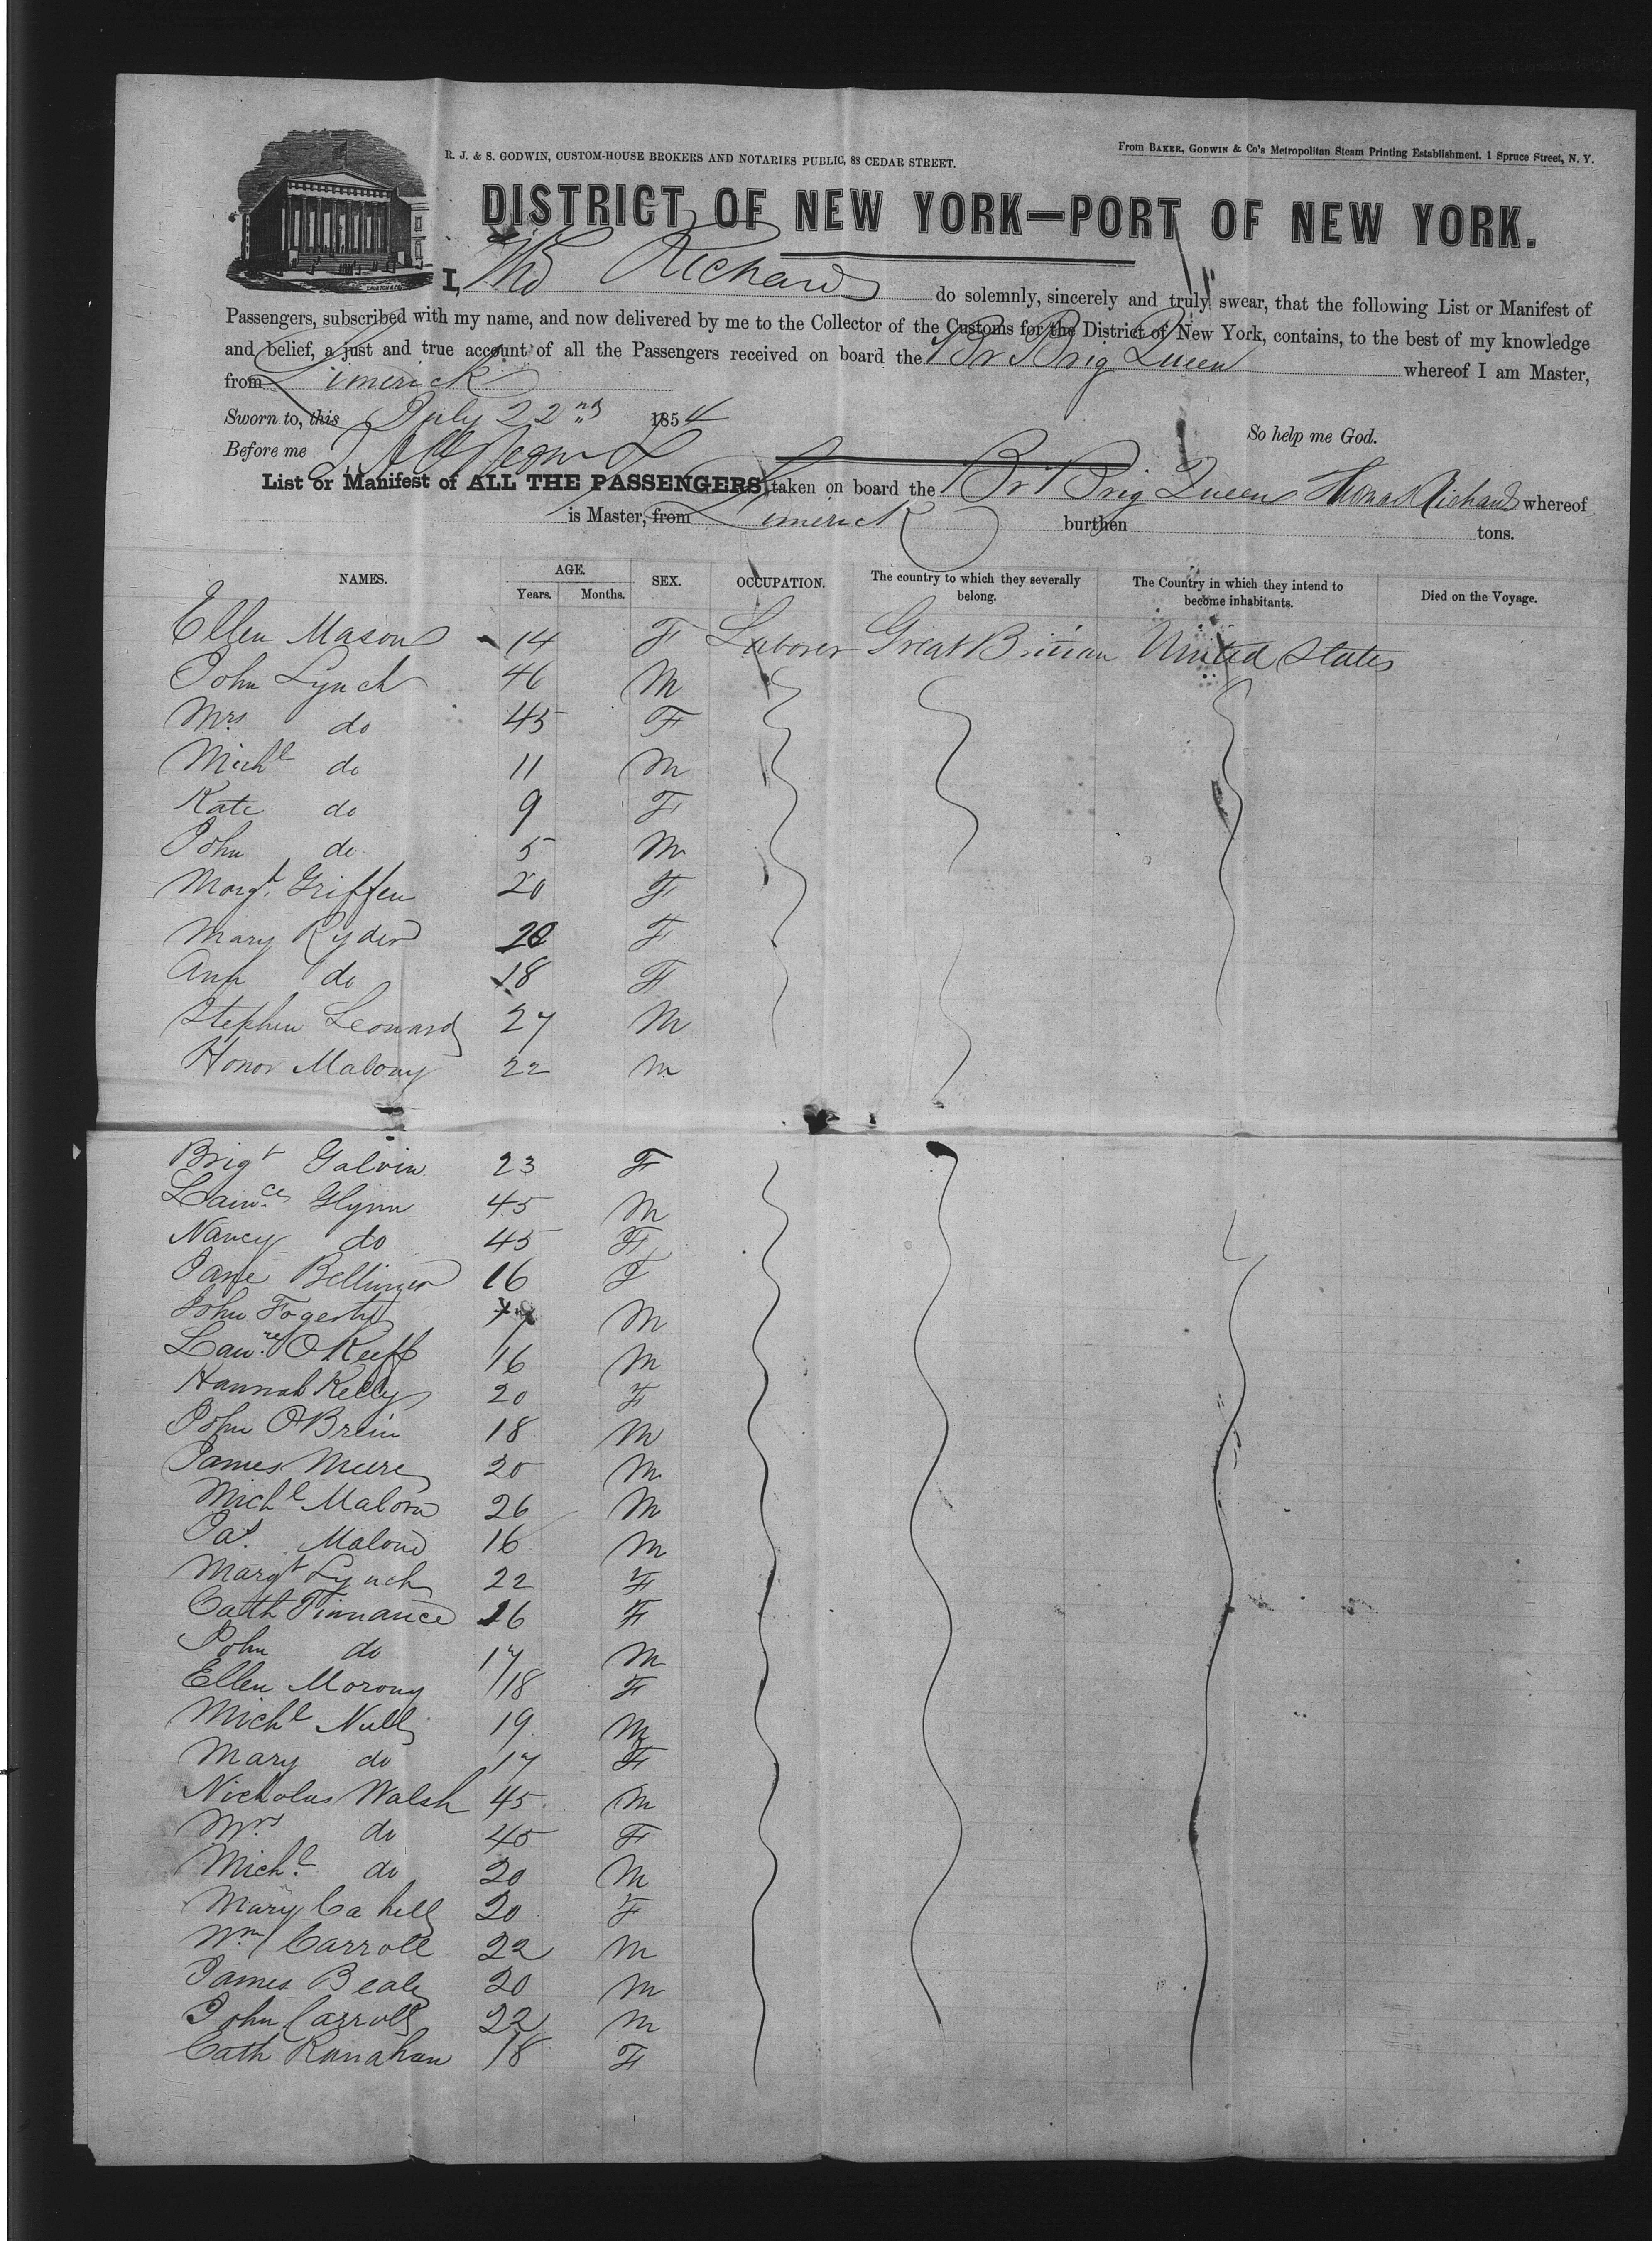 R. J. & S. GODWIN, CUSTOM-HOUSE BROKERS AND NOTARIES PUBLIC, 88 CEDAR STREET.
From BAKER, GODWIN & Co's Metropolitan Steam Printing Establishment, 1 Spruce Street, N. Y.
DISTRICT OF NEW YORK—PORT OF NEW YORK.
I, Thos Richards do solemnly, sincerely and truly swear, that the following List or Manifest of
Passengers, subscribed with my name, and now delivered by me to the Collector of the Customs for the District of New York, contains, to the best of my knowledge
and belief, a just and true account of all the Passengers received on board the Br Brig Queen whereof I am Master,
from Limerick
Sworn to, this July 22nd 1854
So help me God.
Before me
List or Manifest of ALL THE PASSENGERS taken on board the Br Brig Queen Thomas Richards whereof
is Master, from Limerick burthen tons.
NAMES. AGE. SEX. OCCUPATION. The country to which they severally belong. The Country in which they intend to become inhabitants. Died on the Voyage.
Years. Months.
Ellen Mason 14 F Laborer Great Britian United States
John Lynch 46 M
Mrs do 45 F
Michl do 11 M
Kate do 9 F
John do 5 M
Margt Griffen 20 F
Mary Ryder 20 F
Ann do 18 F
Stephen Leonard 27 M
Honor Malony 22 M
Brigt Galvin 23 F
Lawce Glynn 45 M
Nancy do 45 F
Jane Bellinger 16 F
John Fogerty M
Lawre O Keeff 16 M
Hannah Kelly 20 F
John O Brein 18 M
James Meere 20 M
Michl Malone 26 M
Jas Malone 16 M
Margt Lynch 22 F
Cath Finnance 16 F
John do 17 M
Ellen Morony 18 F
Michl 19 M
Mary do 17 F
Nicholas Walsh 45 M
Mrs do 45 F
Michl do 20 M
Mary Cahell 20 F
Wm Carroll 22 M
James Bealy 20 M
John Carroll 22 M
Cath Ranahan 18 F